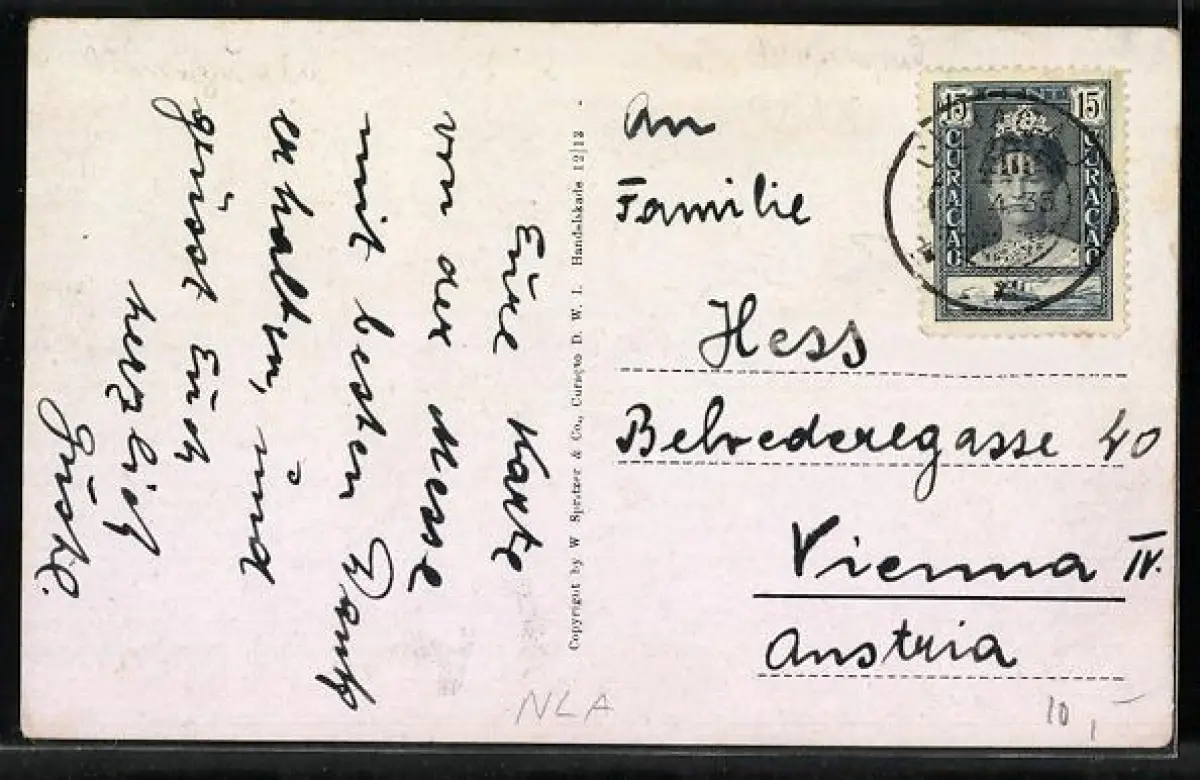 Eure Karte
von der Messe
mit besten Dank
erhalten, und
grüsst Euch
herzlich
Gustl.
Copyright by W Spritzer & Co., Curaçao D. W. I. Handelskade 12/13
15 CENT 15
CURAÇAO
CURAÇAO
An
Familie
Hess
Belvederegasse 40
Vienna IV.
Austria
NLA
10,-